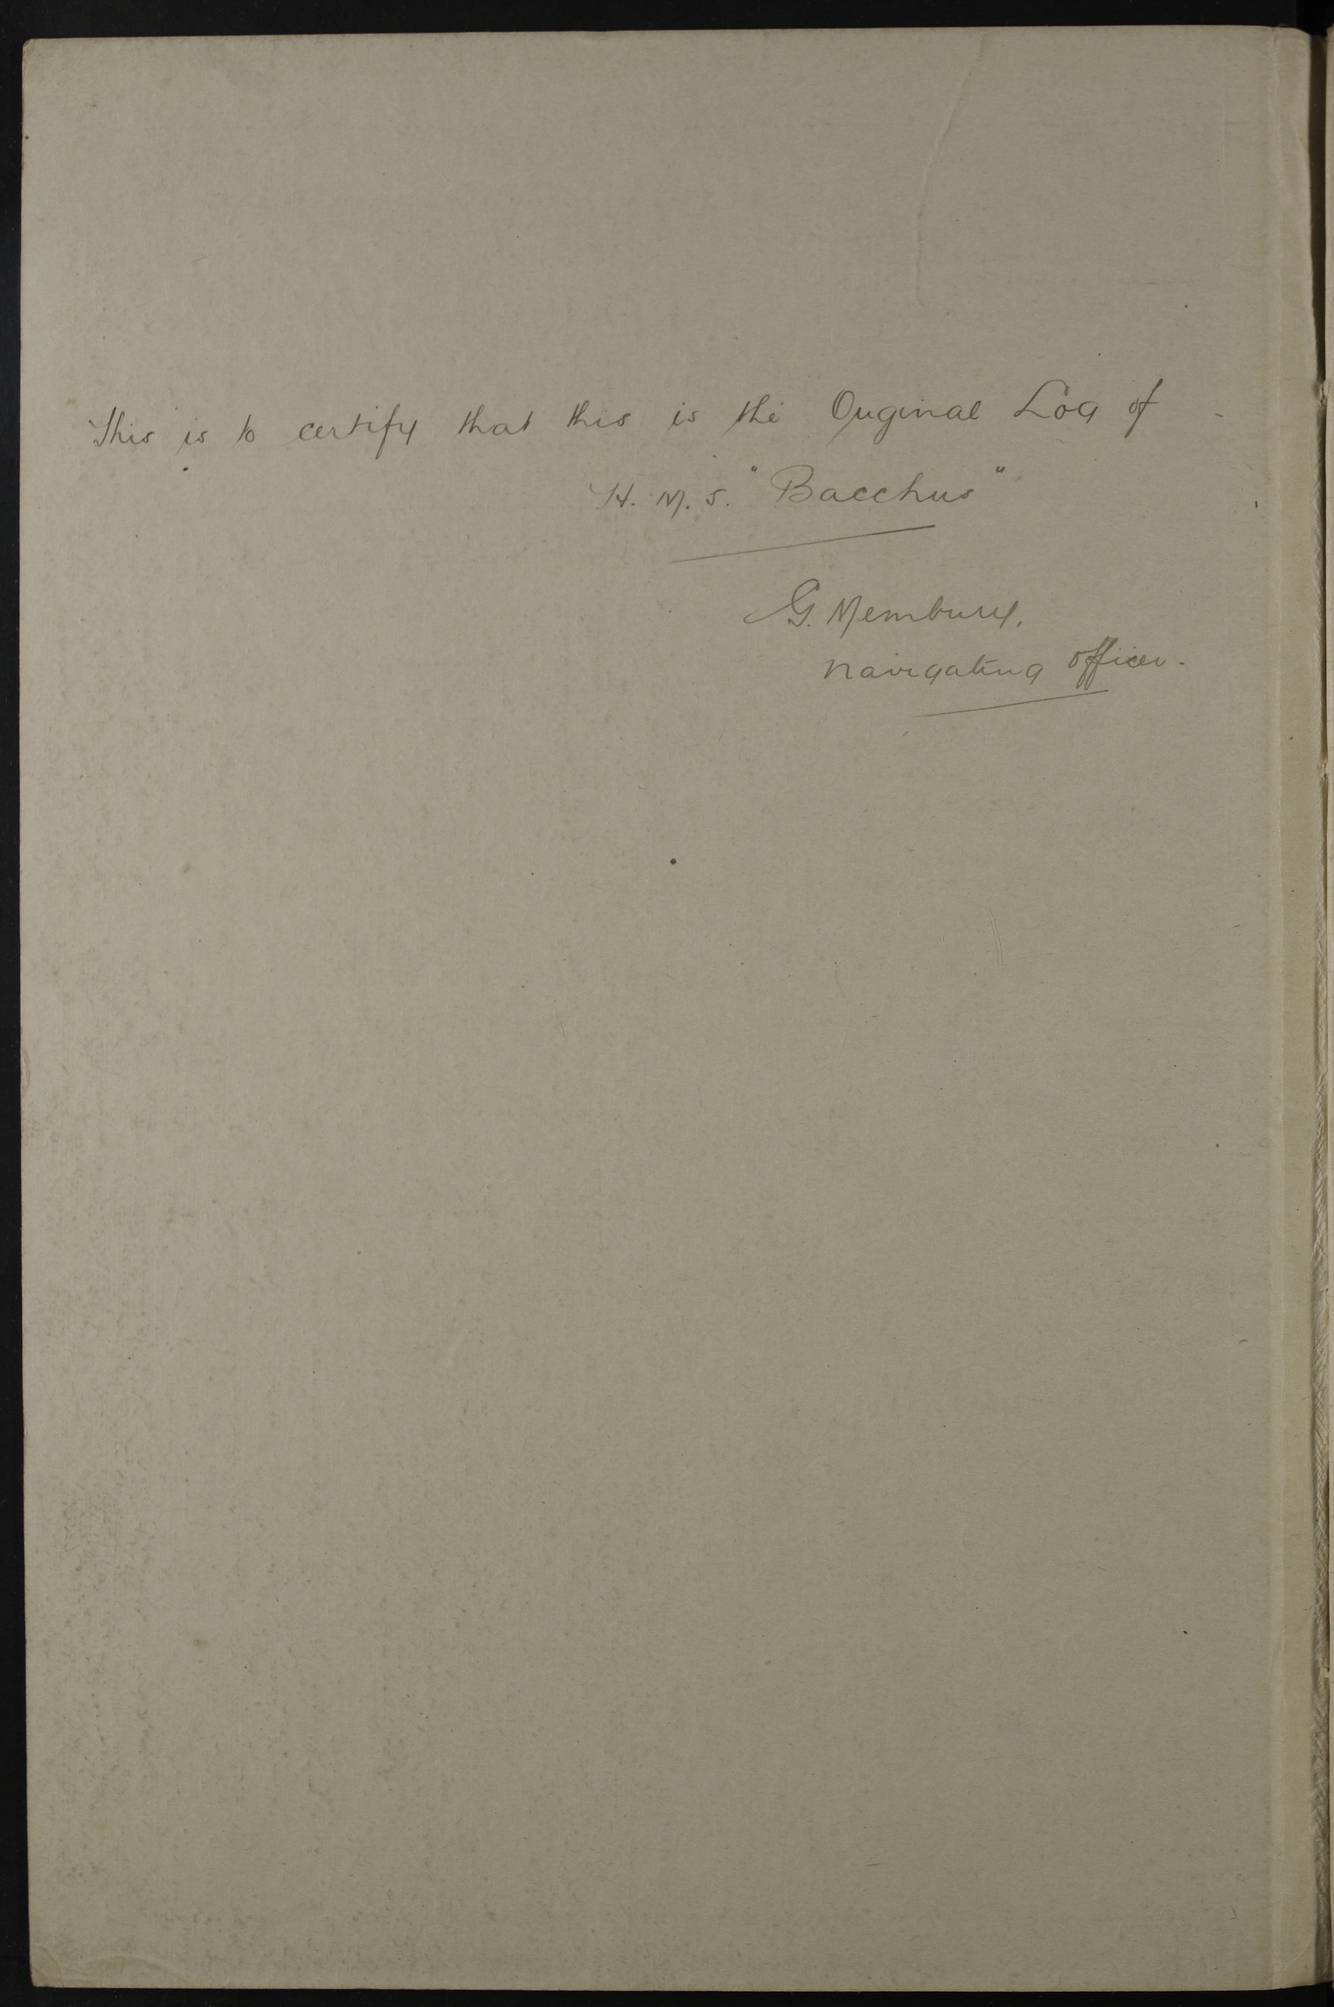 This is to certify that this is the Original Log of
H. M. S. "Bacchus"
G. Membury.
Navigating Officer.